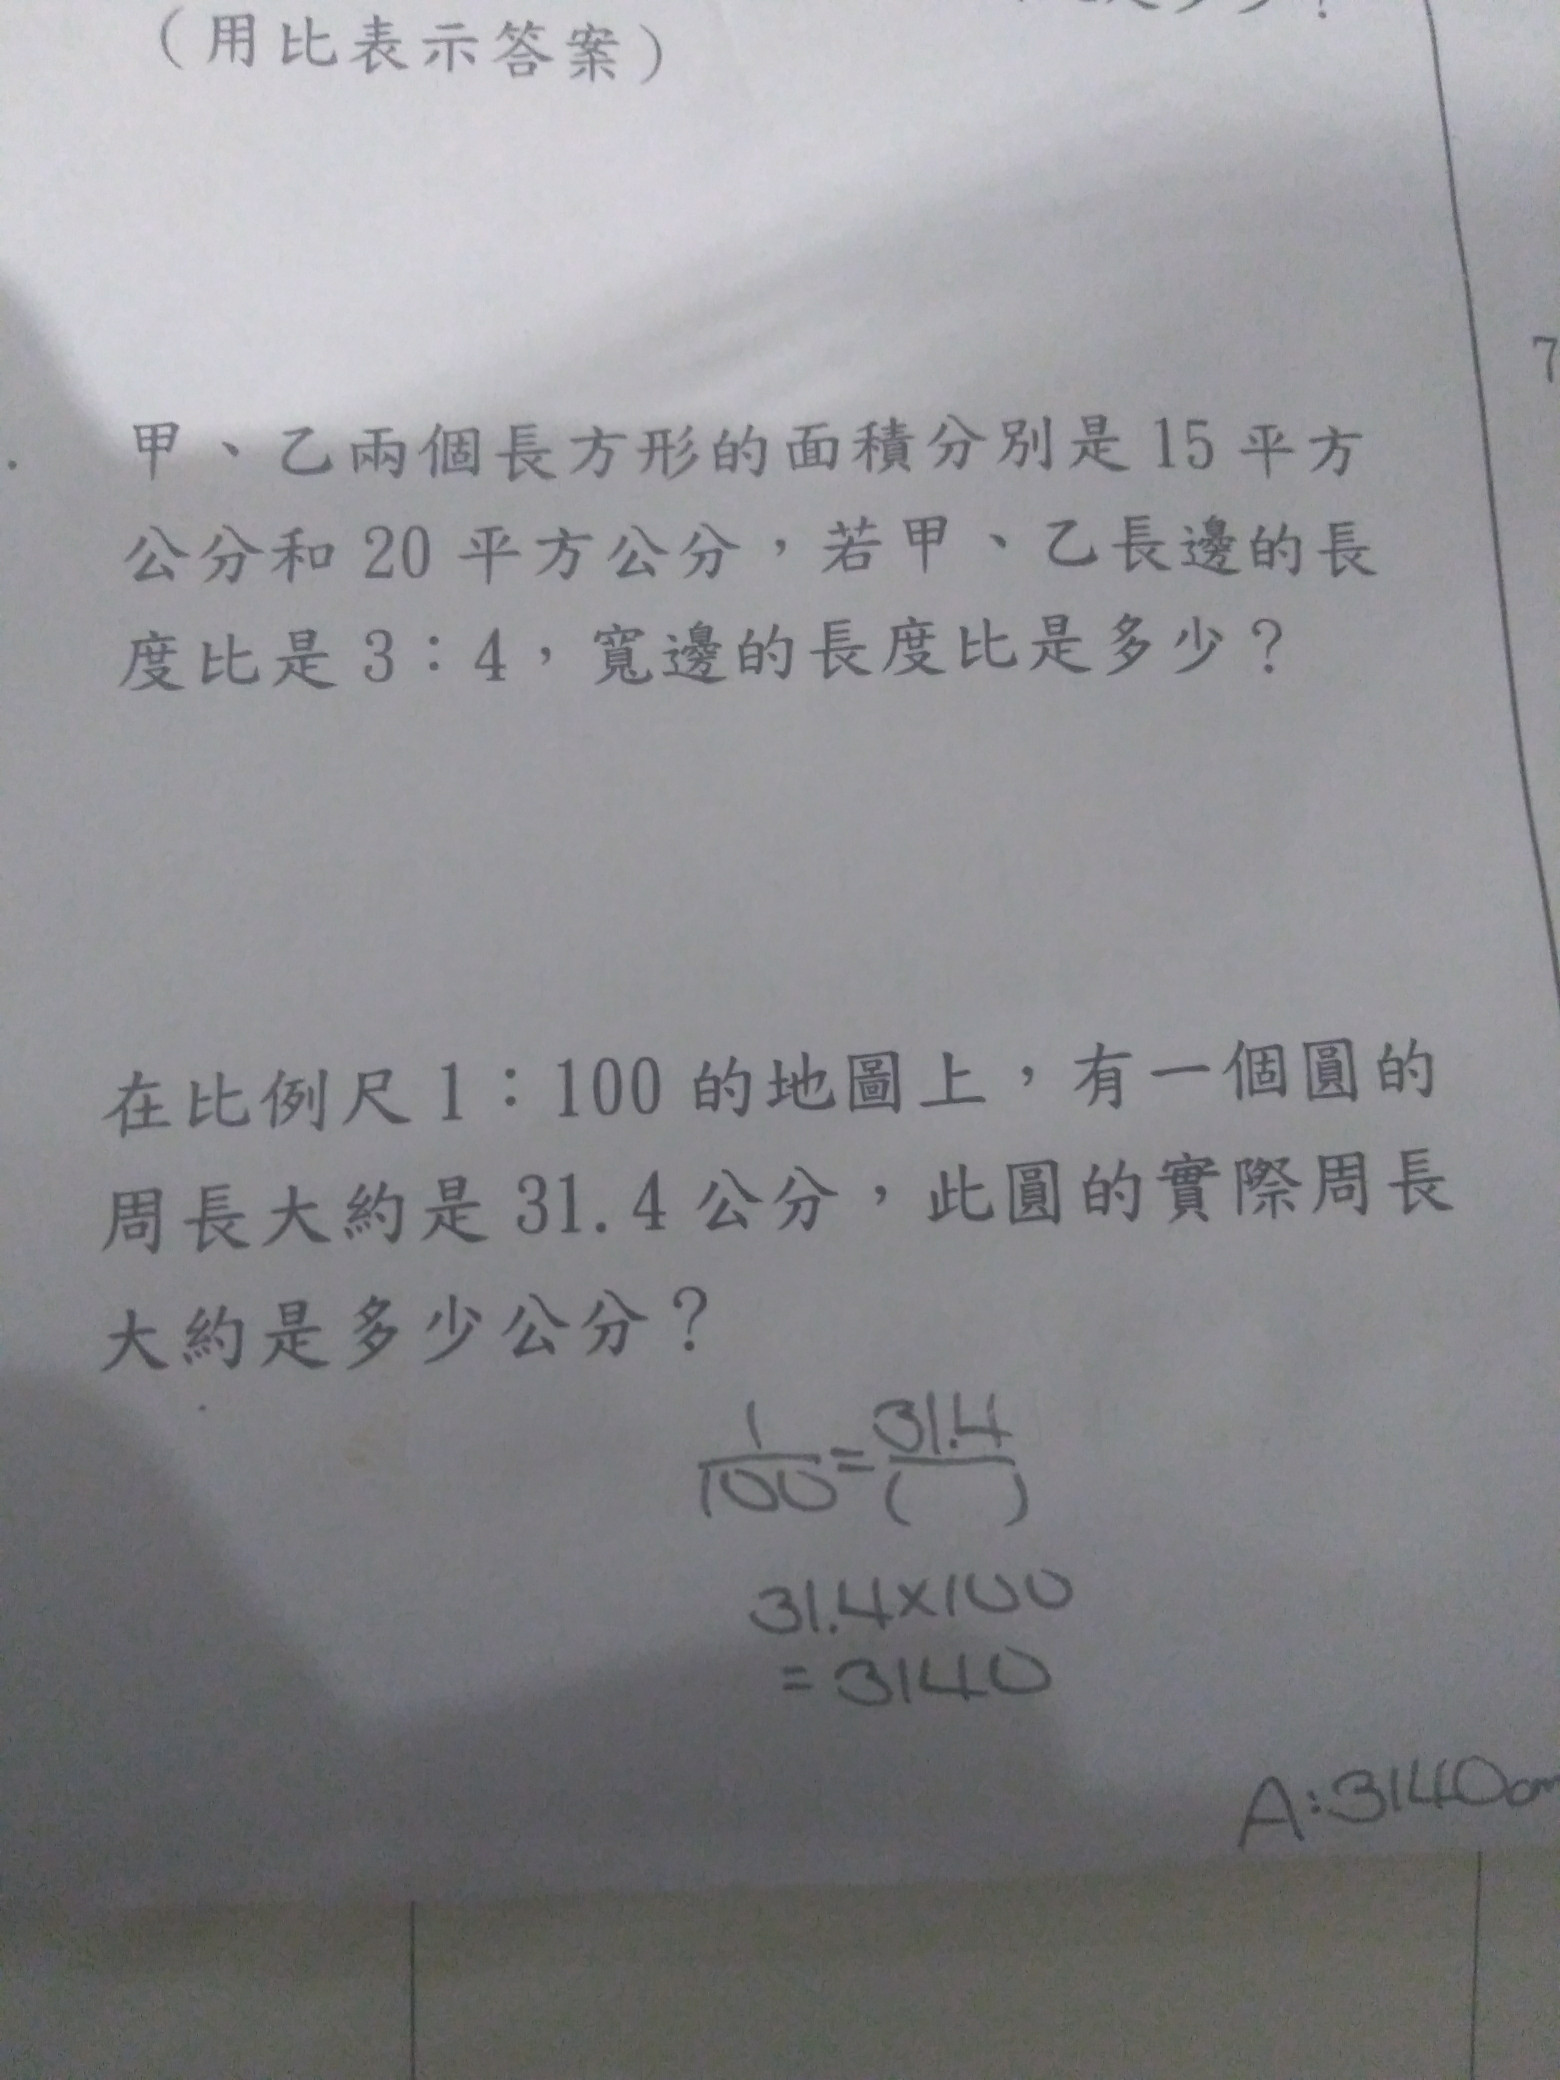 （用比表示答案）
甲、乙兩個長方形的面積分別是15平方
公分和20平方公分，若甲、乙長邊的長
度比是3：4，寬邊的長度比是多少？
7
在比例尺1：100的地圖上，有一個圓的
周長大約是31.4公分，此圓的實際周長
大約是多少公分？
1/100=31.4/( )
31.4×100
=3140
A:3140cm